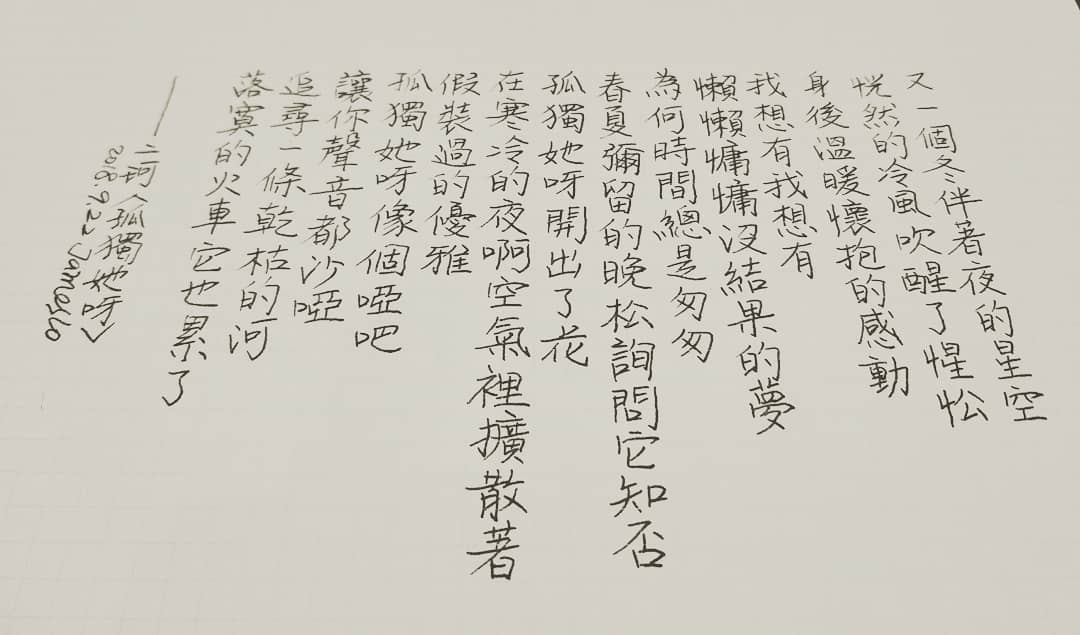 又一個冬伴著夜的星空
恍然的冷風吹醒了惺忪
身後溫暖懷抱的感動
我想有我想有
懶懶慵慵沒結果的夢
為何時間總是匆匆
春夏彌留的晚松詢問它知否
孤獨她呀開出了花
在寒冷的夜啊空氣裡擴散著
假裝過的優雅
孤獨她呀像個啞吧
讓你聲音都沙啞
追尋一條乾枯的河
落寞的火車它也累了
——二珂〈孤獨她呀〉
2018.9.22 Jameslo